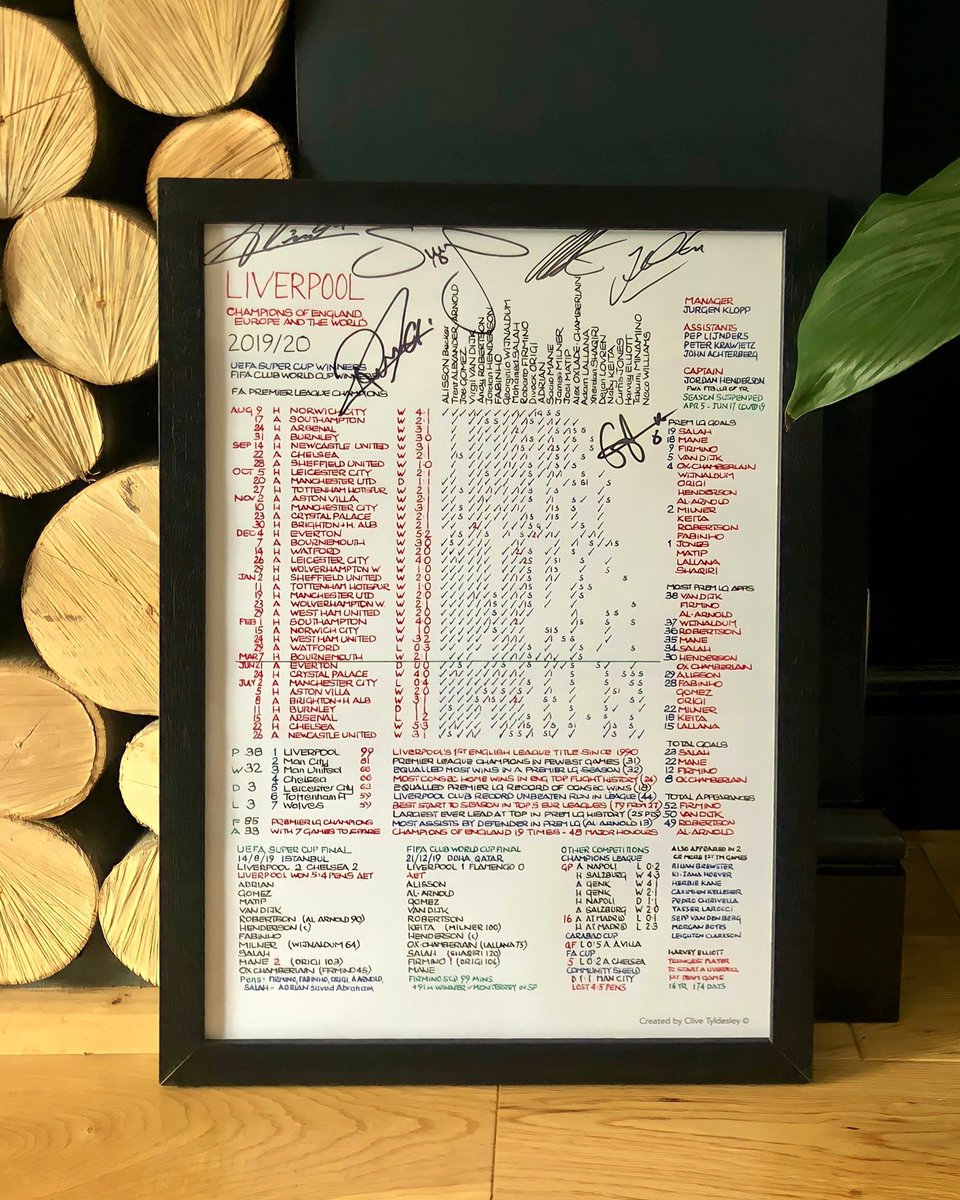 LIVERPOOL
CHAMPIONS OF ENGLAND
EUROPE AND THE WORLD
2019/20
UEFA SUPER CUP WINNERS
FIFA CLUB WORLD CUP WINNERS
FA PREMIER LEAGUE CHAMPIONS
ALISSON Becker
Trent ALEXANDER-ARNOLD
Joe GOMEZ
Virgil VAN DIJK
Andy ROBERTSON
Jordan HENDERSON
FABINHO
Georginio WIJNALDUM
Mohamed SALAH
Roberto FIRMINO
Divock ORIGI
ADRIAN
Sadio MANE
James MILNER
Joel MATIP
Alex OXLADE-CHAMBERLAIN
Adam LALLANA
Xherdan SHAQIRI
Dejan LOVREN
Naby KEITA
Curtis JONES
Harvey ELLIOTT
Takumi MINAMINO
Neco WILLIAMS
MANAGER
JURGEN KLOPP
ASSISTANTS
PEP LIJNDERS
PETER KRAWIETZ
JOHN ACHTERBERG
CAPTAIN
JORDAN HENDERSON
FWA FTBLLR OF YR
SEASON SUSPENDED
APR 5 - JUN 17 COVID 19
AUG 9 H NORWICH CITY W 4 1
17 A SOUTHAMPTON W 2 1
24 H ARSENAL W 3 1
31 A BURNLEY W 3 0
SEP 14 H NEWCASTLE UNITED W 3 1
22 A CHELSEA W 2 1
28 A SHEFFIELD UNITED W 1 0
OCT 5 H LEICESTER CITY W 2 1
20 A MANCHESTER UTD D 1 1
27 H TOTTENHAM HOTSPUR W 2 1
NOV 2 A ASTON VILLA W 2 1
10 H MANCHESTER CITY W 3 1
23 A CRYSTAL PALACE W 2 1
30 H BRIGHTON + H. ALB W 2 1
DEC 4 H EVERTON W 5 2
7 A BOURNEMOUTH W 3 0
14 H WATFORD W 2 0
26 A LEICESTER CITY W 4 0
29 H WOLVERHAMPTON W W 1 0
JAN 2 H SHEFFIELD UNITED W 2 0
11 A TOTTENHAM HOTSPUR W 1 0
19 H MANCHESTER UTD W 2 0
23 A WOLVERHAMPTON W. W 2 1
29 A WEST HAM UNITED W 2 0
FEB 1 H SOUTHAMPTON W 4 0
15 A NORWICH CITY W 1 0
24 H WEST HAM UNITED W 3 2
29 A WATFORD L 0 3
MAR 7 H BOURNEMOUTH W 2 1
JUN 21 A EVERTON D 0 0
24 H CRYSTAL PALACE W 4 0
JULY 2 A MANCHESTER CITY L 0 4
5 H ASTON VILLA W 2 0
8 A BRIGHTON + H ALB W 3 1
11 H BURNLEY D 1 1
15 A ARSENAL L 1 2
22 H CHELSEA W 5 3
26 A NEWCASTLE UNITED W 3 1
PREM LG GOALS
19 SALAH
18 MANE
9 FIRMINO
5 VAN DIJK
4 OX CHAMBERLAIN
WIJNALDUM
ORIGI
HENDERSON
AL-ARNOLD
2 MILNER
KEITA
ROBERTSON
FABINHO
1 JONES
MATIP
LALLANA
SHAQIRI
MOST PREM LG APPS
38 VAN DIJK
FIRMINO
AL-ARNOLD
37 WIJNALDUM
36 ROBERTSON
35 MANE
34 SALAH
30 HENDERSON
OX CHAMBERLAIN
29 ALISSON
28 FABINHO
GOMEZ
ORIGI
22 MILNER
18 KEITA
15 LALLANA
TOTAL GOALS
23 SALAH
22 MANE
12 FIRMINO
8 OX CHAMBERLAIN
TOTAL APPEARANCES
52 FIRMINO
50 VAN DIJK
49 ROBERTSON
AL-ARNOLD
P 38
W 32
D 3
L 3
F 85
A 33
1 LIVERPOOL 99
2 Man City 81
3 Man United 66
4 Chelsea 66
5 Leicester City 62
6 Tottenham H 59
7 Wolves 59
PREMIER LG CHAMPIONS
WITH 7 GAMES TO SPARE
LIVERPOOL'S 1ST ENGLISH LEAGUE TITLE SINCE 1990
PREMIER LEAGUE CHAMPIONS IN FEWEST GAMES (31)
EQUALLED MOST WINS IN A PREMIER LG SEASON (32)
MOST CONSEC HOME WINS IN ENG TOP FLIGHT HISTORY (24)
EQUALLED PREMIER LG RECORD OF CONSEC WINS (18)
LIVERPOOL CLUB RECORD UNBEATEN RUN IN LEAGUE (44)
BEST START TO SEASON IN TOP 5 EUR LEAGUES (79 FROM 27)
LARGEST EVER LEAD AT TOP IN PREM LG HISTORY (25 PTS)
MOST ASSISTS BY DEFENDER IN PREM LG (AL ARNOLD 13)
CHAMPIONS OF ENGLAND 19 TIMES - 48 MAJOR HONOURS
UEFA SUPER CUP FINAL
14/8/19 ISTANBUL
LIVERPOOL 2 CHELSEA 2
LIVERPOOL WON 5-4 PENS AET
ADRIAN
GOMEZ
MATIP
VAN DIJK
ROBERTSON (AL ARNOLD 90)
HENDERSON (c)
FABINHO
MILNER (WIJNALDUM 64)
SALAH
MANE 2 (ORIGI 103)
OX CHAMBERLAIN (FIRMINO 45)
Pens: FIRMINO, FABINHO, ORIGI, A ARNOLD,
SALAH - ADRIAN saved Abraham
FIFA CLUB WORLD CUP FINAL
21/12/19 DOHA, QATAR
LIVERPOOL 1 FLAMENGO 0
AET
ALISSON
AL-ARNOLD
GOMEZ
VAN DIJK
ROBERTSON
KEITA (MILNER 100)
HENDERSON (c)
OX-CHAMBERLAIN (LALLANA 75)
SALAH (SHAQIRI 120)
FIRMINO 1 (ORIGI 106)
MANE
FIRMINO SCD 99 MINS
+ 91m WINNER v MONTERREY IN SF
OTHER COMPETITIONS
CHAMPIONS LEAGUE
GP A NAPOLI L 0 2
H SALZBURG W 4 3
A GENK W 4 1
H GENK W 2 1
H NAPOLI D 1 1
A SALZBURG W 2 0
16 A AT MADRID L 0 1
H AT MADRID L 2 3
CARABAO CUP
QF L 0 5 A. A VILLA
FA CUP
5 L 0 2 A CHELSEA
COMMUNITY SHIELD
D 1 1 MAN CITY
LOST 4-5 PENS
ALSO APPEARED IN 2
OR MORE 1ST TM GAMES
RHIAN BREWSTER
KI-JANA HOEVER
HERBIE KANE
CAOIMHIN KELLEHER
PEDRO CHIRIVELLA
YASSER LAROUCI
SEPP VAN DEN BERG
MORGAN BOYES
LEIGHTON CLARKSON
HARVEY ELLIOTT
YOUNGEST PLAYER
TO START A LIVERPOOL
1ST TEAM GAME
16 YR 174 DAYS
Created by Clive Tyldesley ©